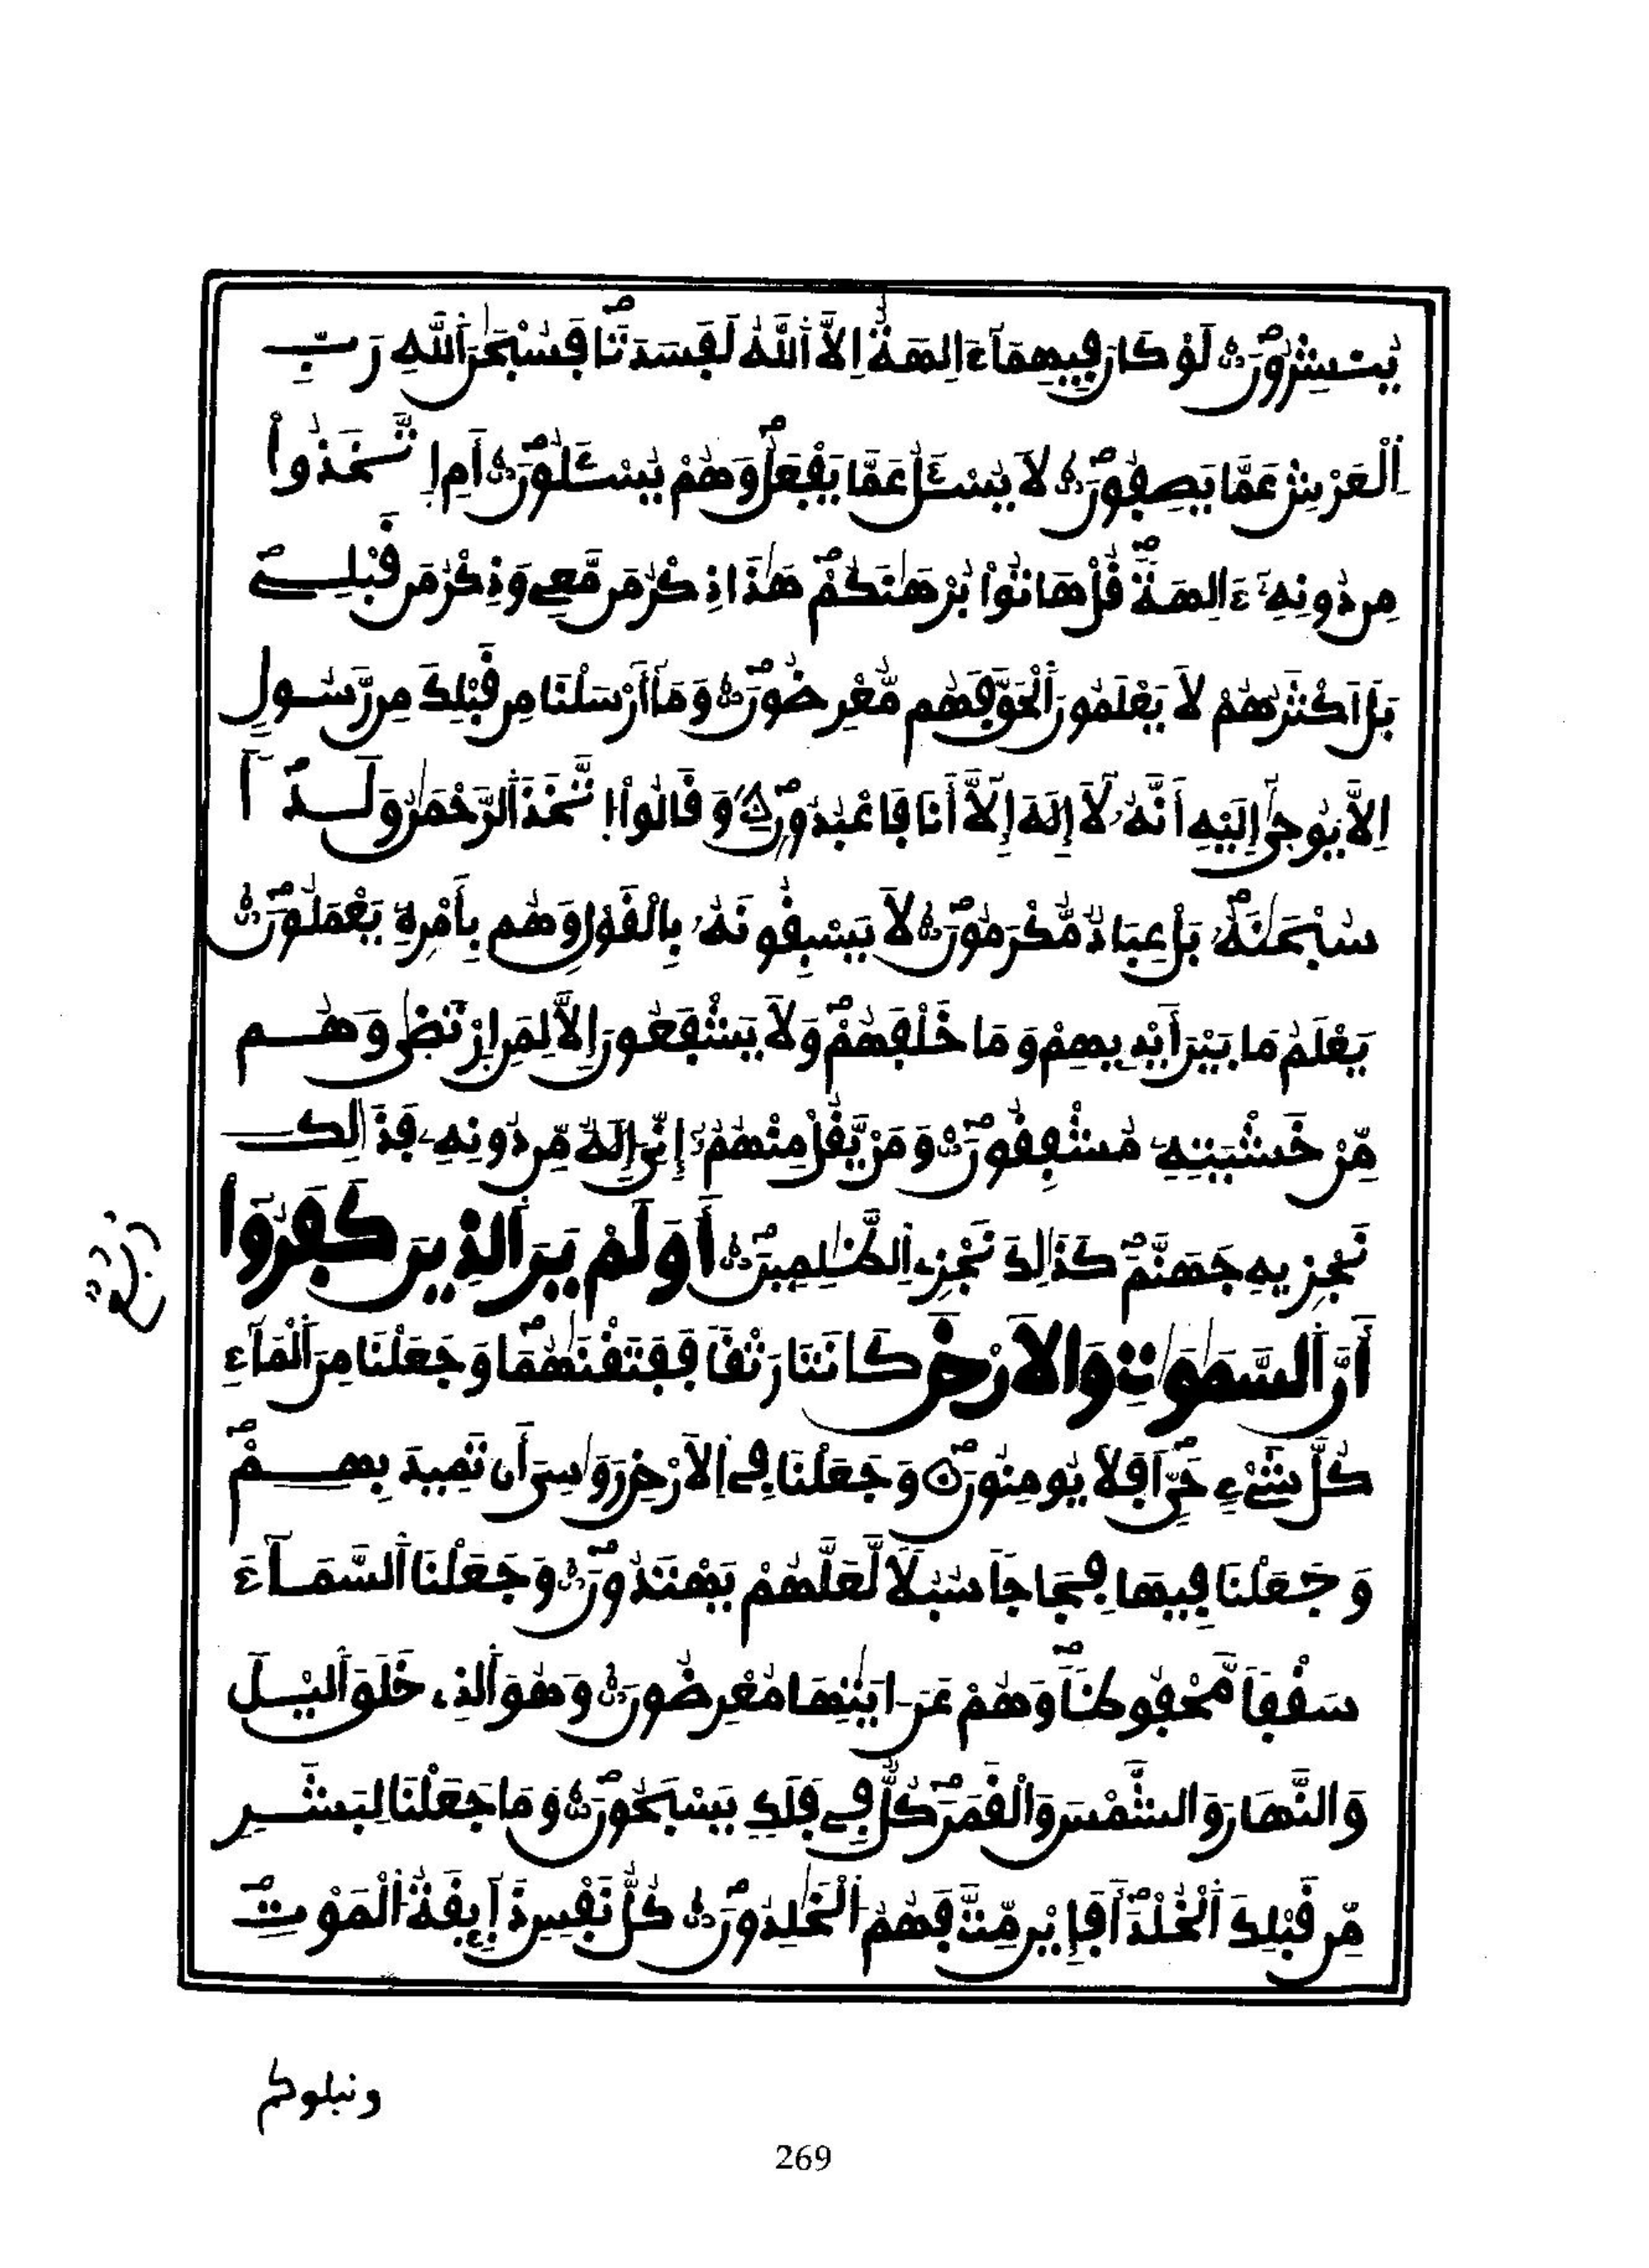 يُنشِرُونَ لَوْ كَانَ فِيهِمَا ءَالِهَةٌ اِلَّا اَ۬للَّهُ لَفَسَدَتَا فَسُبْحَٰنَ اَ۬للَّهِ رَبِّ
اِ۬لْعَرْشِ عَمَّا يَصِفُونَ لَا يُسْـَٔلُ عَمَّا يَفْعَلُ وَهُمْ يُسْـَٔلُونَ أَمِ اِ۪تَّخَذُواْ
مِن دُونِهِۦٓ ءَالِهَةً قُلْ هَاتُواْ بُرْهَٰنَكُمْ هَٰذَا ذِكْرُ مَن مَّعِي وَذِكْرُ مَن قَبْلِے
بَلَ اَكْثَرُهُمْ لَا يَعْلَمُونَ اَ۬لْحَقَّ فَهُم مُّعْرِضُونَ وَمَآ أَرْسَلْنَا مِن قَبْلِكَ مِن رَّسُولٍ
اِلَّا يُوحَىٰٓ إِلَيْهِ أَنَّهُۥ لَآ إِلَٰهَ إِلَّآ أَنَا فَاعْبُدُونِ وَقَالُواْ اُ۪تَّخَذَ اَ۬لرَّحْمَٰنُ وَلَداٗ
سُبْحَٰنَهُۥ بَلْ عِبَادٌ مُّكْرَمُونَ لَا يَسْبِقُونَهُۥ بِالْقَوْلِ وَهُم بِأَمْرِهِۦ يَعْمَلُونَ
يَعْلَمُ مَا بَيْنَ أَيْدِيهِمْ وَمَا خَلْفَهُمْ وَلَا يَشْفَعُونَ إِلَّا لِمَنِ اِ۪رْتَضَىٰ وَهُم
مِّنْ خَشْيَتِهِۦ مُشْفِقُونَ وَمَنْ يَّقُلْ مِنْهُمُۥٓ إِنِّيَ إِلَٰهٌ مِّن دُونِهِۦ فَذَٰلِكَ
نَجْزِيهِ جَهَنَّمَ كَذَٰلِكَ نَجْزِے اِ۬لظَّٰلِمِينَ أَوَلَمْ يَرَ اَ۬لذِينَ كَفَرُوٓاْ
أَنَّ اَ۬لسَّمَٰوَٰتِ وَالَارْضَ كَانَتَا رَتْقاً فَفَتَقْنَٰهُمَا وَجَعَلْنَا مِنَ اَ۬لْمَآءِ
كُلَّ شَےْءٍ حَيٍّ اَفَلَا يُومِنُونَ وَجَعَلْنَا فِے اِ۬لَارْضِ رَوَٰسِيَ أَن تَمِيدَ بِهِمْ
وَجَعَلْنَا فِيهَا فِجَاجاً سُبُلاً لَّعَلَّهُمْ يَهْتَدُونَ وَجَعَلْنَا اَ۬لسَّمَآءَ
سَقْفاً مَّحْفُوظاً وَهُمْ عَنَ اٰيَٰتِهَا مُعْرِضُونَ وَهُوَ اَ۬لذِے خَلَقَ اَ۬ليْلَ
وَالنَّهَارَ وَالشَّمْسَ وَالْقَمَرَ كُلٌّ فِے فَلَكٍ يَسْبَحُونَ وَمَا جَعَلْنَا لِبَشَرٍ
مِّن قَبْلِكَ اَ۬لْخُلْدَ أَفَإِيْن مِّتَّ فَهُمُ اُ۬لْخَٰلِدُونَ كُلُّ نَفْسٍ ذَآئِقَةُ اُ۬لْمَوْتِ
ونبلوكم
269